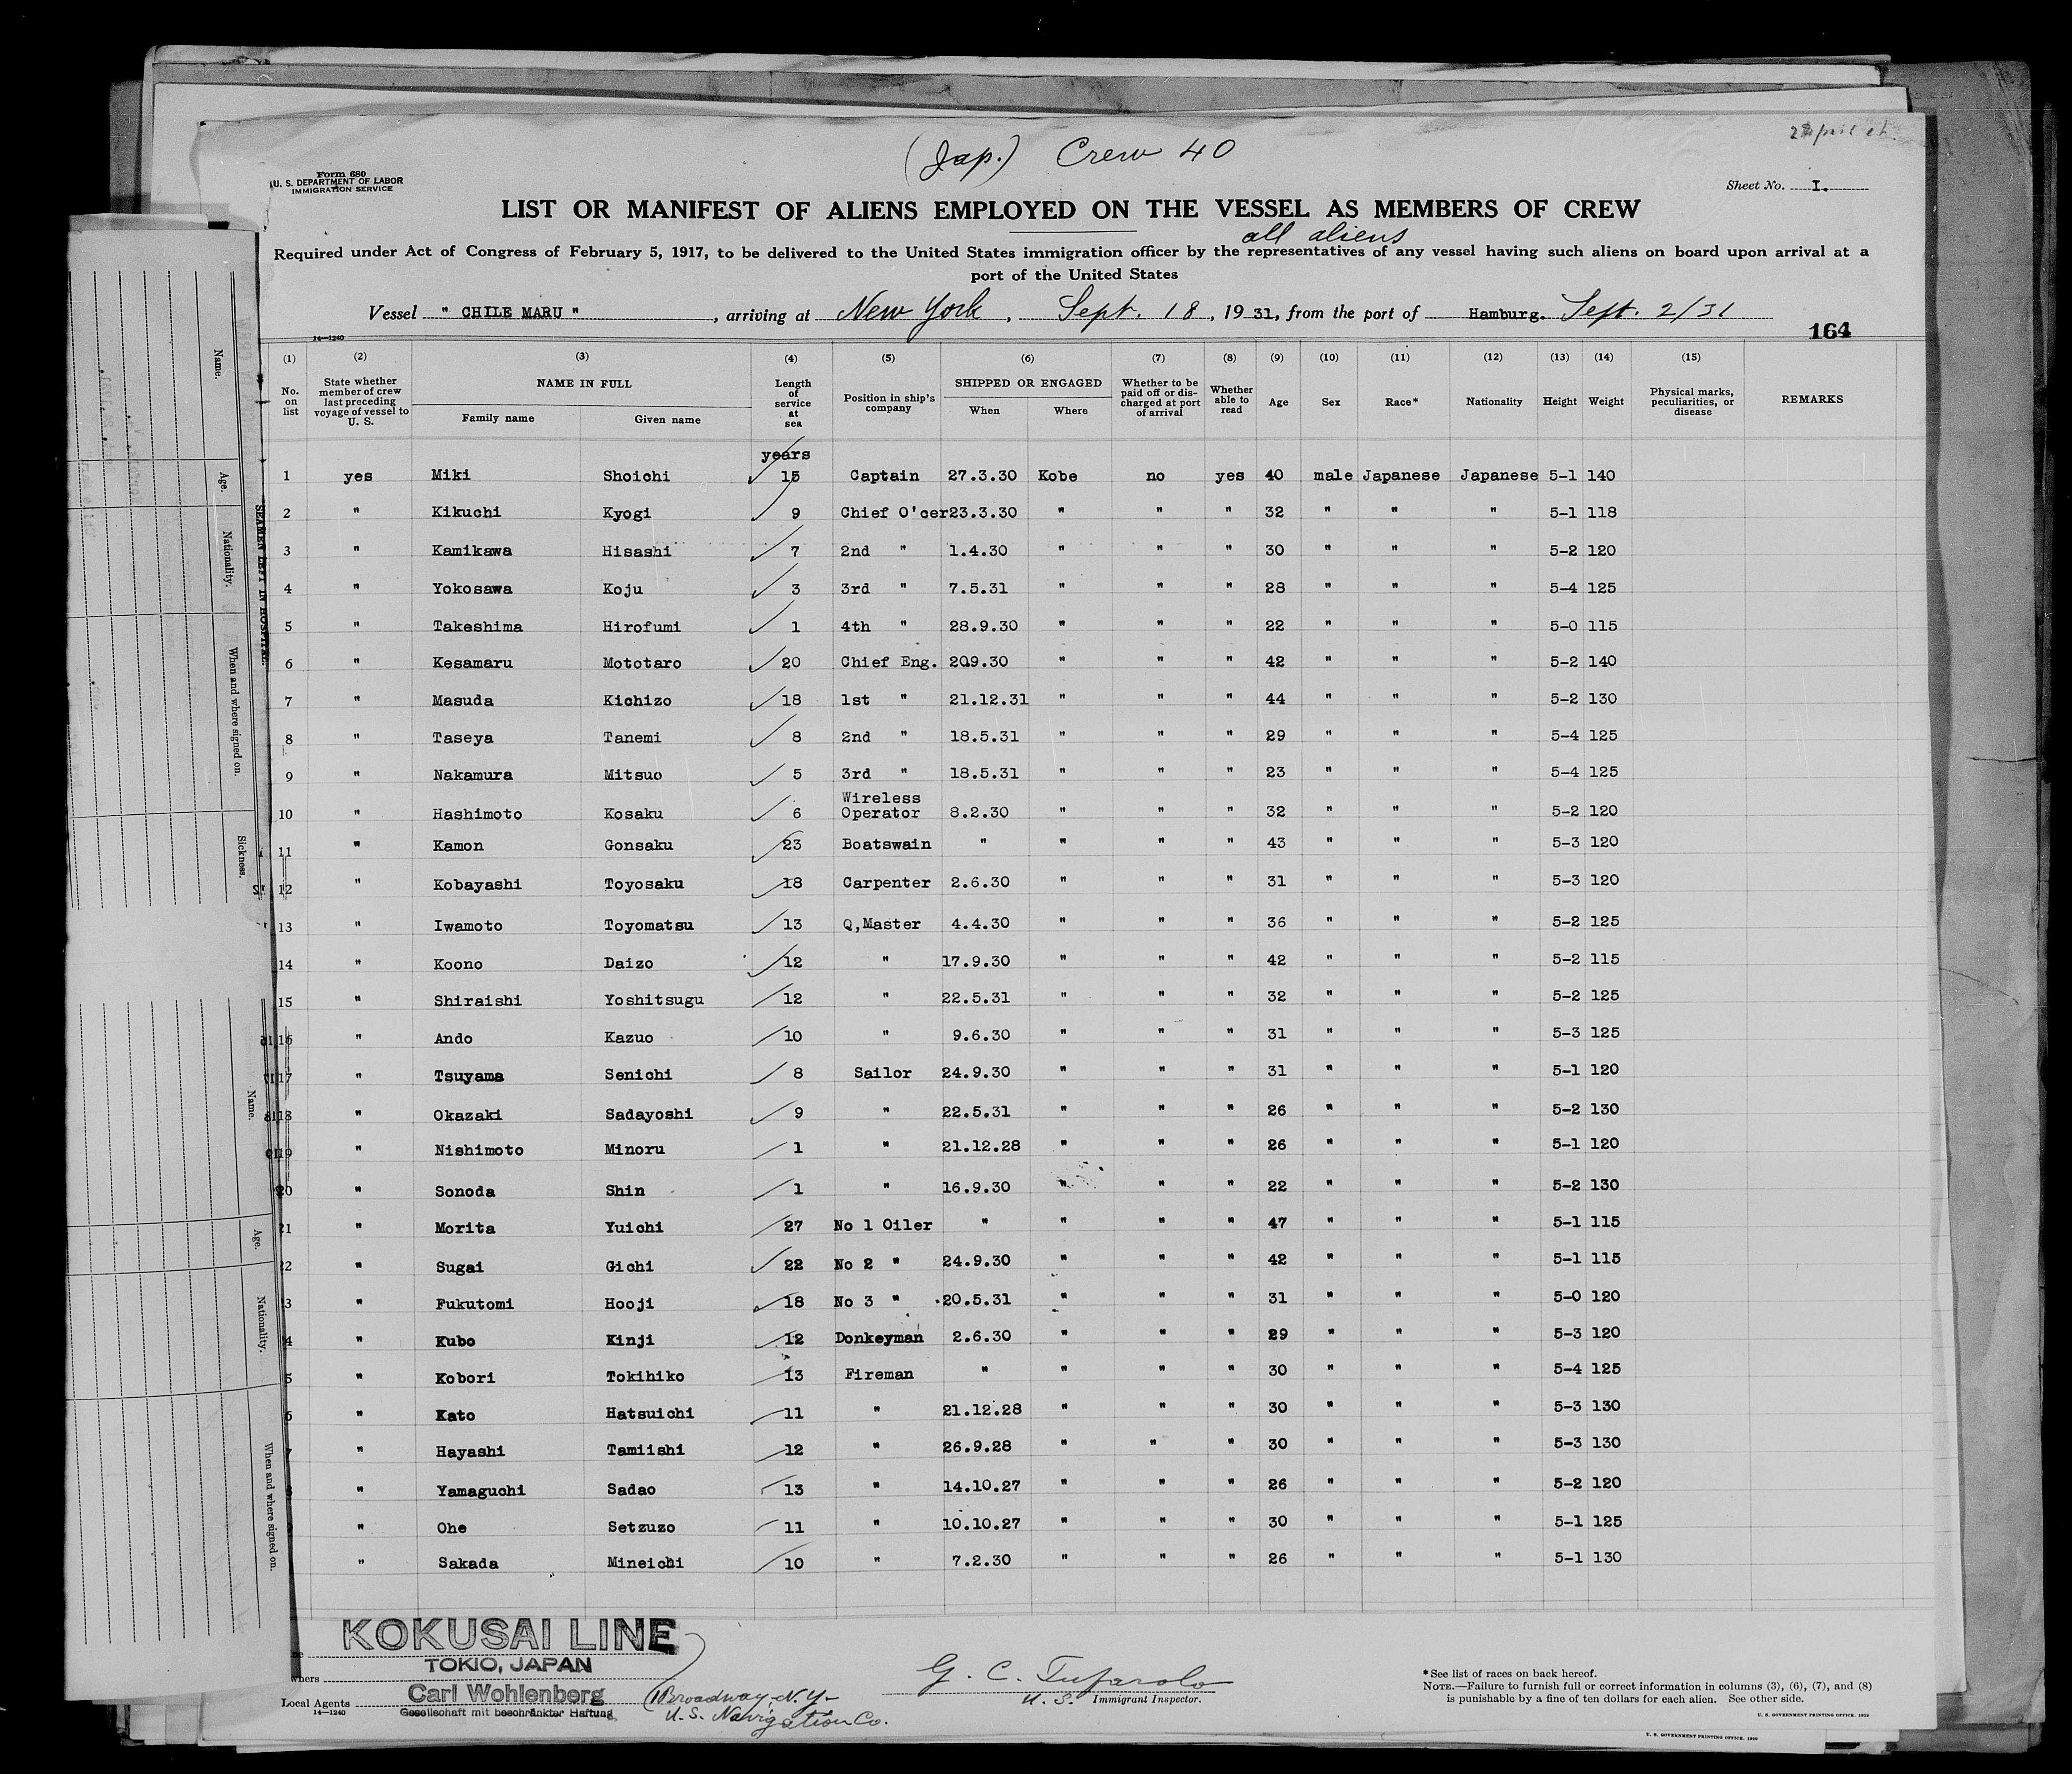 (Jap.) Crew 40
Form 680
U. S. DEPARTMENT OF LABOR
IMMIGRATION SERVICE
Sheet No. I.
LIST OR MANIFEST OF ALIENS EMPLOYED ON THE VESSEL AS MEMBERS OF CREW
all aliens
Required under Act of Congress of February 5, 1917, to be delivered to the United States immigration officer by the representatives of any vessel having such aliens on board upon arrival at a
port of the United States
Vessel " CHILE MARU ", arriving at New York, Sept. 18, 1931, from the port of Hamburg. Sept. 2/31
164
14—1240
(1) (2) (3) (4) (5) (6) (7) (8) (9) (10) (11) (12) (13) (14) (15)
No. on list State whether member of crew last preceding voyage of vessel to U. S. NAME IN FULL Family name Given name Length of service at sea Position in ship's company SHIPPED OR ENGAGED When Where Whether to be paid off or discharged at port of arrival Whether able to read Age Sex Race* Nationality Height Weight Physical marks, peculiarities, or disease REMARKS
years
1 yes Miki Shoichi 15 Captain 27.3.30 Kobe no yes 40 male Japanese Japanese 5-1 140
2 " Kikuchi Kyogi 9 Chief O'cer 23.3.30 " " " 32 " " " 5-1 118
3 " Kamikawa Hisashi 7 2nd " 1.4.30 " " " 30 " " " 5-2 120
4 " Yokosawa Koju 3 3rd " 7.5.31 " " " 28 " " " 5-4 125
5 " Takeshima Hirofumi 1 4th " 28.9.30 " " " 22 " " " 5-0 115
6 " Kesamaru Mototaro 20 Chief Eng. 209.30 " " " 42 " " " 5-2 140
7 " Masuda Kichizo 18 1st " 21.12.31 " " " 44 " " " 5-2 130
8 " Taseya Tanemi 8 2nd " 18.5.31 " " " 29 " " " 5-4 125
9 " Nakamura Mitsuo 5 3rd " 18.5.31 " " " 23 " " " 5-4 125
10 " Hashimoto Kosaku 6 Wireless Operator 8.2.30 " " " 32 " " " 5-2 120
11 " Kamon Gonsaku 23 Boatswain " " " " 43 " " " 5-3 120
12 " Kobayashi Toyosaku 18 Carpenter 2.6.30 " " " 31 " " " 5-3 120
13 " Iwamoto Toyomatsu 13 Q,Master 4.4.30 " " " 36 " " " 5-2 125
14 " Koono Daizo 12 " 17.9.30 " " " 42 " " " 5-2 115
15 " Shiraishi Yoshitsugu 12 " 22.5.31 " " " 32 " " " 5-2 125
16 " Ando Kazuo 10 " 9.6.30 " " " 31 " " " 5-3 125
17 " Tsuyama Senichi 8 Sailor 24.9.30 " " " 31 " " " 5-1 120
18 " Okazaki Sadayoshi 9 " 22.5.31 " " " 26 " " " 5-2 130
19 " Nishimoto Minoru 1 " 21.12.28 " " " 26 " " " 5-1 120
20 " Sonoda Shin 1 " 16.9.30 " " " 22 " " " 5-2 130
21 " Morita Yuichi 27 No 1 Oiler " " " " 47 " " " 5-1 115
2 " Sugai Gichi 22 No 2 " 24.9.30 " " " 42 " " " 5-1 115
3 " Fukutomi Hooji 18 No 3 " 20.5.31 " " " 31 " " " 5-0 120
4 " Kubo Kinji 12 Donkeyman 2.6.30 " " " 29 " " " 5-3 120
5 " Kobori Tokihiko 13 Fireman " " " " 30 " " " 5-4 125
6 " Kato Hatsuichi 11 " 21.12.28 " " " 30 " " " 5-3 130
7 " Hayashi Tamiishi 12 " 26.9.28 " " " 30 " " " 5-3 130
" Yamaguchi Sadao 13 " 14.10.27 " " " 26 " " " 5-2 120
" Ohe Setzuzo 11 " 10.10.27 " " " 30 " " " 5-1 125
" Sakada Mineichi 10 " 7.2.30 " " " 26 " " " 5-1 130
KOKUSAI LINE
TOKIO, JAPAN
Local Agents Carl Wohlenberg
Gesellschaft mit beschränkter Haftung
14—1240
Broadway, N.Y-
U.S. Navigation Co.
G. C. Tufarolo
U. S. Immigrant Inspector.
*See list of races on back hereof.
NOTE.—Failure to furnish full or correct information in columns (3), (6), (7), and (8)
is punishable by a fine of ten dollars for each alien. See other side.
U. S. GOVERNMENT PRINTING OFFICE. 1929
U. S. GOVERNMENT PRINTING OFFICE. 1929
SEAMEN LEFT IN HOSPITAL.
Name.
Age.
Nationality.
When and where signed on.
Sickness.
Name.
Age.
Nationality.
When and where signed on.